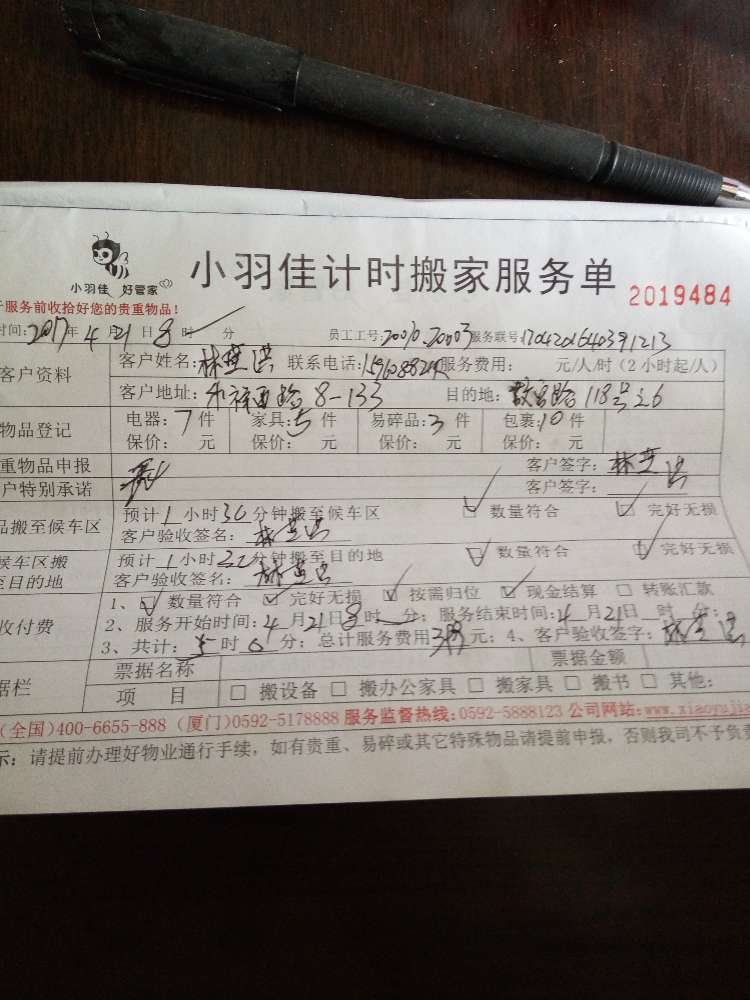 小羽佳 好管家
小羽佳计时搬家服务单 2019484
服务前收拾好您的贵重物品！
时间：2017年4月21日8时 分 员工工号：20010.20003 服务联号：
客户资料 客户姓名： 联系电话： 服务费用： 元/人/时（2小时起/人）
客户地址： 8-133 目的地： 118号之6
物品登记 电器：7件 家具：5件 易碎品：3件 包裹：10件
保价： 元 保价： 元 保价： 元 保价： 元
重物品申报 客户签字：
户特别承诺 客户签字：
品搬至候车区 预计1小时30分钟搬至候车区 □ 数量符合 □ 完好无损
客户验收签名：
候车区搬至目的地 预计1小时30分钟搬至目的地 □ 数量符合 □ 完好无损
客户验收签名：
收付费 1、□ 数量符合 □ 完好无损 □ 按需归位 □ 现金结算 □ 转账汇款
2、服务开始时间：4月21日8时 分；服务结束时间：4月21日 时 分；
3、共计：5时0分；总计服务费用 元；4、客户验收签字：
据栏 票据名称 票据金额
项 目 □ 搬设备 □ 搬办公家具 □ 搬家具 □ 搬书 □ 其他：
（全国）400-6655-888（厦门）0592-5178888 服务监督热线：0592-5888123 公司网站：www.xiaoyujia
示：请提前办理好物业通行手续，如有贵重、易碎或其它特殊物品请提前申报，否则我司不予负责